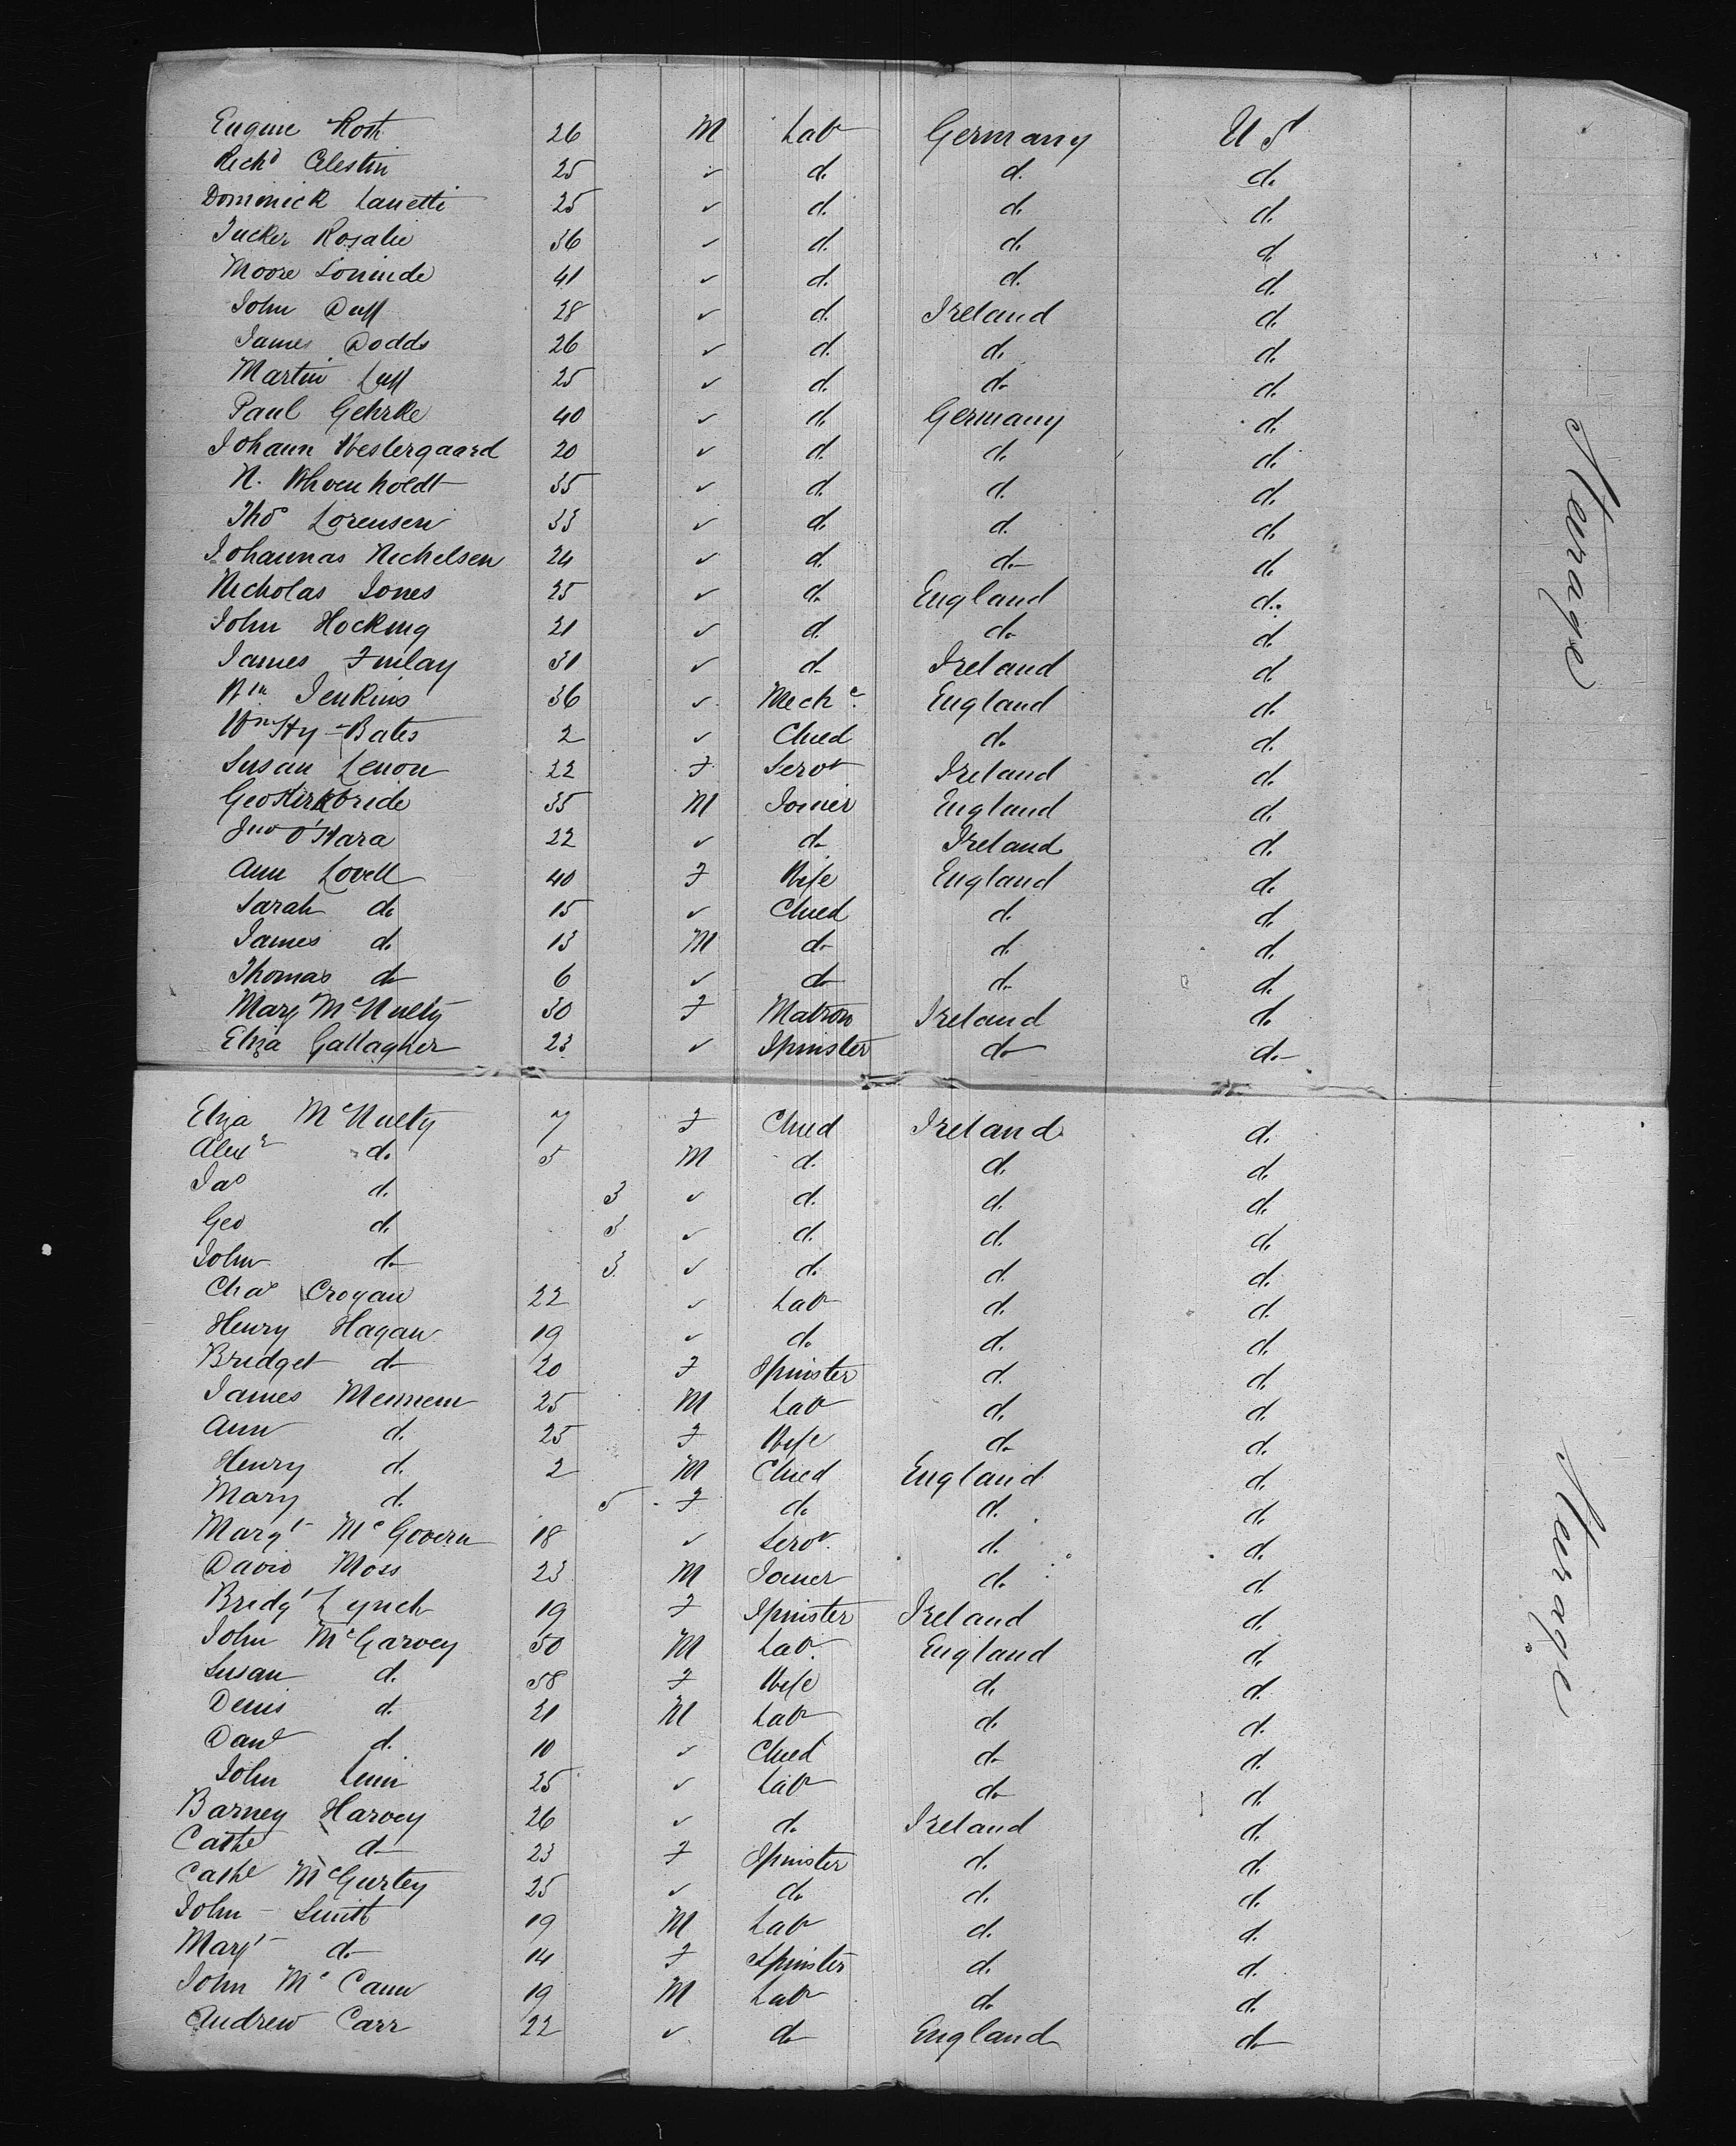 Eugene Roth 26 M Labr Germany U S
Richd Celestin 25 ✓ d. d. d.
Dominick Lanetti 25 ✓ d. d. d.
Tucker Rosalie 36 ✓ d. d. d.
Moore 41 ✓ d. d. d.
John Duff 28 ✓ d. Ireland d.
James Dodds 26 ✓ d. d. d.
Martin Luff 25 ✓ d. d. d.
Paul Gehrke 40 ✓ d. Germany d.
Johann Westergaard 20 ✓ d. d. d.
N. 35 ✓ d. d. d.
Thos Lorensen 33 ✓ d. d. d.
Johannas Nichelsen 24 ✓ d. d. d.
Nicholas Jones 25 ✓ d. England d.
John Hocking 21 ✓ d. d. d.
James Finlay 31 ✓ d. Ireland d.
Wm Jenkins 36 ✓ Mechc. England d.
Wm Hy Bates 2 ✓ Child d. d.
Susan Lenon 22 F Servt Ireland d.
Geo Kirkbride 35 M Joiner England d.
Jno O'Hara 22 ✓ d. Ireland d.
Ann Lovell 40 F Wife England d.
Sarah d. 15 ✓ Child d. d.
James d. 13 M d. d. d.
Thomas d. 6 ✓ d. d. d.
Mary McNulty 30 F Matron Ireland d.
Eliza Gallagher 23 ✓ Spinster d. d.
Steerage
Eliza McNulty 7 F Child Ireland d.
Alexr d. 5 M d. d. d.
Jas d. 3 ✓ d. d. d.
Geo d. 3 ✓ d. d. d.
John d. 3 ✓ d. d. d.
Chas Crogan 22 ✓ Labr d. d.
Henry Hagan 19 ✓ d. d. d.
Bridget d. 20 F Spinster d. d.
James Mennem 25 M Labr d. d.
Ann d. 25 F Wife d. d.
Henry d. 2 M Child England d.
Mary d. 5 F d. d. d.
Margt McGovern 18 ✓ Servt. d. d.
David Moss 23 M Joiner d. d.
Bridgt Lynch 19 F Spinster Ireland d.
John McGarvey 50 M Labr. England d.
Susan d. 58 F Wife d. d.
Denis d. 21 M Labr d. d.
Danl d. 10 ✓ Child d. d.
John 25 ✓ Labr d. d.
Barney Harvey 26 ✓ d. Ireland d.
Cathe d. 23 F Spinster d. d.
Cathe McGurtey 25 ✓ d. d. d.
John Smith 19 M Labr d. d.
Margt d. 14 F Spinster d. d.
John McCann 19 M Labr d. d.
Andrew Carr 22 ✓ d. England d.
Steerage